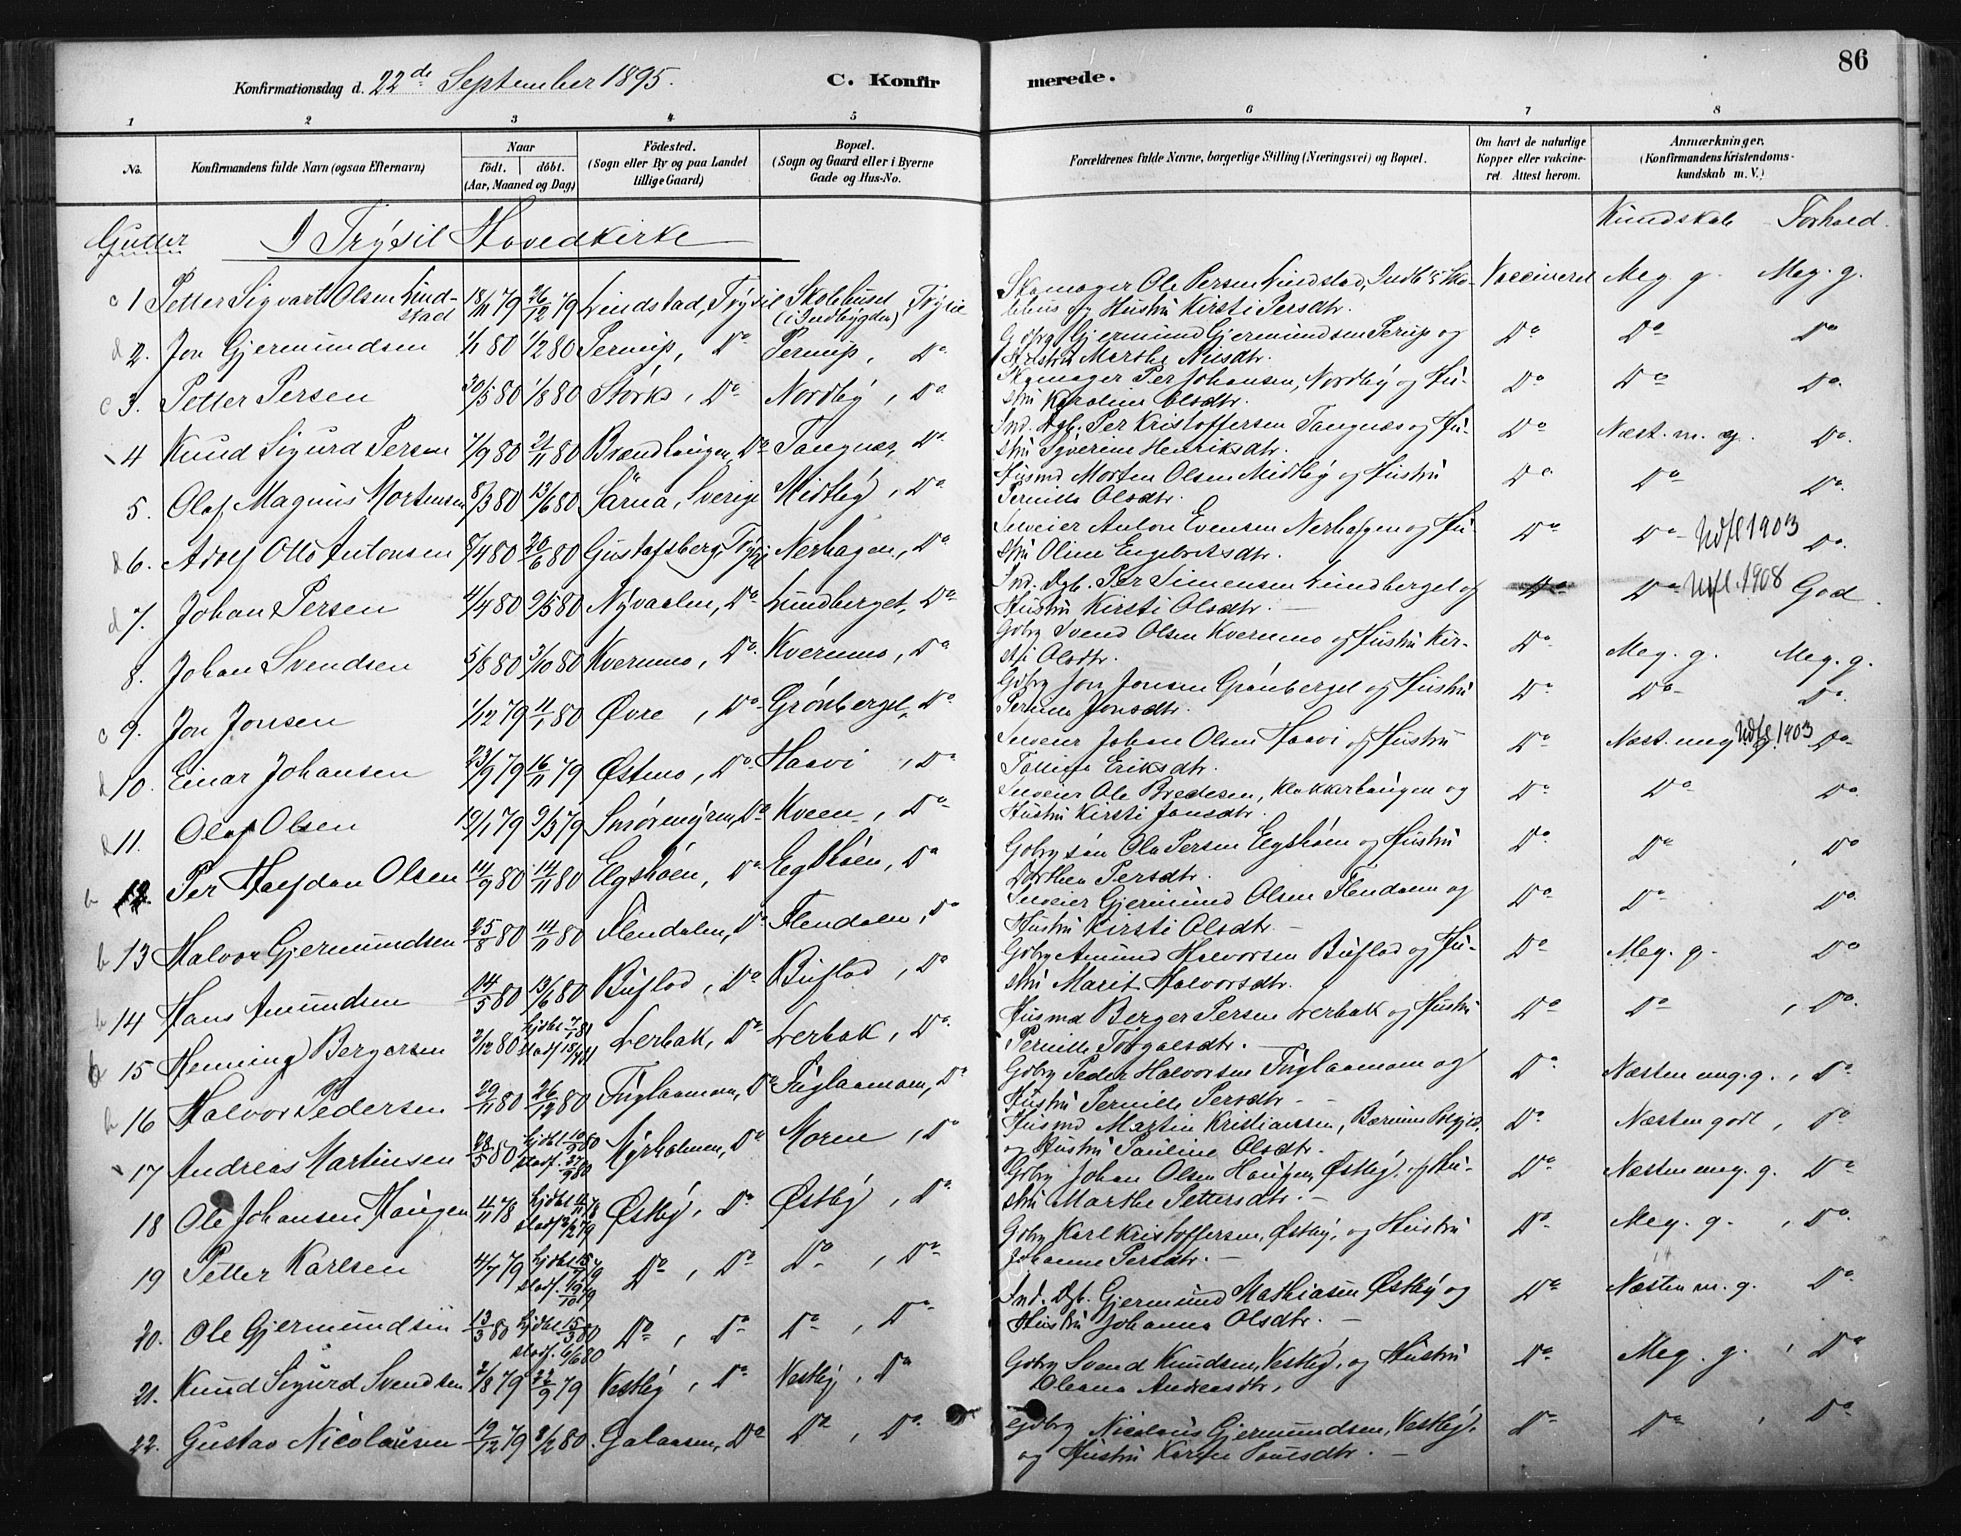 86
Konfirmationsdag d. 22de September 1895.
C. Konfirmerede.
1 2 3 4 5 6 7 8
No.
Konfirmandens fulde Navn (ogsaa Efternavn)
Naar
födt. döbt.
(Aar, Maaned og Dag)
Födested.
(Sogn eller By og paa Landet
tillige Gaard)
Bopæl.
(Sogn og Gaard eller i Byerne
Gade og Hus-No.
Forældrenes fulde Navne, borgerlige Stilling (Næringsvei) og Bopæl.
Om havt de naturlige
Kopper eller vakcine-
ret. Attest herom.
Anmærkninger.
(Konfirmandens Kristendoms-
kundskab m. V.)
Gutter I Trysil Hovedkirke Kundskab Forhold.
c 1 Petter Sigvart Olsen Lindstad 18/11 79 26/12 79 Lindstad, Trysil Skolehuset (i Indbygden), Trysil Ole Persen Lindstad, Hustru Kirsti Persdtr. Vaccineret Meg. g. Meg. g.
d 2. Jon Gjermundsen 1/1 80 1/2 80 Perrup, Do Perrup, Do Gbrg Gjermund Gjermundsen Perup og Hustru Marthe Nilsdtr. Do Do Do
c 3. Petter Persen 30/5 80 1/8 80 Störks, Do Nordby, Do Skomager Per Johansen, Nordby og Hustru Karoline Olsdtr. Do Do Do.
4 Knud Sigurd Persen 7/9 80 21/11 80 Do Tangnæs, Do Ind. Dgb. Per Kristoffersen Tangnæs og Hustru Syverine Henriksdtr. Do Næst. m. g. Do.
5. Olaf Magnus Mortensen 8/3 80 13/6 80 Särna, Sverige Midtby, Do Husmd Morten Olsen Midtby og Hustru Pernille Olsdtr. Do Do Do.
d 6. Adolf Otto Antonsen 8/4 80 20/6 80 Gustafsberg, Trysil Nerhagen, Do Selveier Anton Evensen Nerhagen og Hustru Oline Engebretsdtr. Do Do Udfl 1903 Do.
d 7. Johan Persen 2/4 80 2/5 80 Nyvaalen, Do Lundberget, Do Ind. Dgb. Per Simensen Lundberget og Hustru Kirsti Olsdtr. Do Do Udfl. 1908 God.
8. Johan Svendsen 5/8 80 3/10 80 Kvernmo, Do Kvernmo, Do Gbrg Svend Olsen Kvernmo og Hustru Kirsti Olsdtr. Do Meg. g. Meg. g.
c 9. Jon Jonsen 1/12 79 11/1 80 Øvre, Do Grønberget, Do Gbrg Jon Jonsen Grønberget og Hustru Pernille Jonsdtr. Do Do Do.
d 10. Einar Johansen 23/9 79 16/11 79 Østmo, Do Haavi, Do Selveier Johan Olsen Haavi og Hustru Eriksdtr. Do Næst. meg g. Udfl. 1903 Do
d 11. Olaf Olsen 19/1 79 9/3 79 Do Kveen, Do Selveier Ole Bredesen, Klokkerhaugen og Hustru Kirsti Jonsdtr. Do Do Do.
12. Per Halfdan Olsen 14/9 80 14/11 80 Elgshöen, Do Elgshöen, Do Gbrg søn Ole Persen Elgshöen og Hustru Dorthea Persdtr. Do Do Do
b 13 Halvor Gjermundsen 25/8 80 14/11 80 Flendalen, Do Flendalen, Do Selveier Gjermund Olsen Flendalen og Hustru Kirsti Olsdtr. Do Do Do
14 Hans Amundsen 14/5 80 13/6 80 Buflod, Do Buflod, Do Gbrg Amund Halvorsen Buflod og Hustru Marit Halvorsdtr. Do Meg. g. Do
15 Henning Bergersen 2/12 80 Lerbak, Do Lerbak, Do Husmd Berger Persen Lerbak og Hustru Pernille Torgalsdtr. Do Do Do.
16 Halvor Pedersen 29/11 80 26/12 80 Fuglaamoen, Do Fuglaamoen, Do Gbrg Peder Halvorsen Fuglaamoen og Hustru Pernille Persdtr. Do Næsten meg. g. Do
17 Andreas Martinsen 28/5 80 Myrholmen, Do Moren, Do Husmd Martin Kristiansen, og Hustru Pauline Olsdtr. Do Næsten godt, Do
18 Ole Johansen Haugen 4/11 78 Østby, Do Østby, Do Gbrg Johan Olsen Haugen, Østby, og Hustru Marthe Pettersdtr. Do Næsten meg. g. Do
19 Petter Karlsen 4/7 79 Do, Do Do, Do Gbrg Karl Kristoffersen, Østby, og Hustru Johanne Persdtr. Do Meg. g. Do.
20. Ole Gjermundsen 13/3 80 Do, Do Do, Do Ind. Dgb. Gjermund Mathiasen Østby og Hustru Johanna Olsdtr. Do Næsten m. g. Do.
21. Knud Sigurd Svendsen 2/8 79 22/9 79 Vestby, Do Vestby, Do Gbrg Svend Knudsen, Vestby, og Hustru Oleana Andreasdtr. Do Meg. g. Do
22. Gustav Nicolaisen 19/12 79 8/2 80 Galaasen, Do Do, Do Gbrg Nicolaus Gjermundsen, Vestby, og Hustru Karen Poulsdtr. Do Do Do